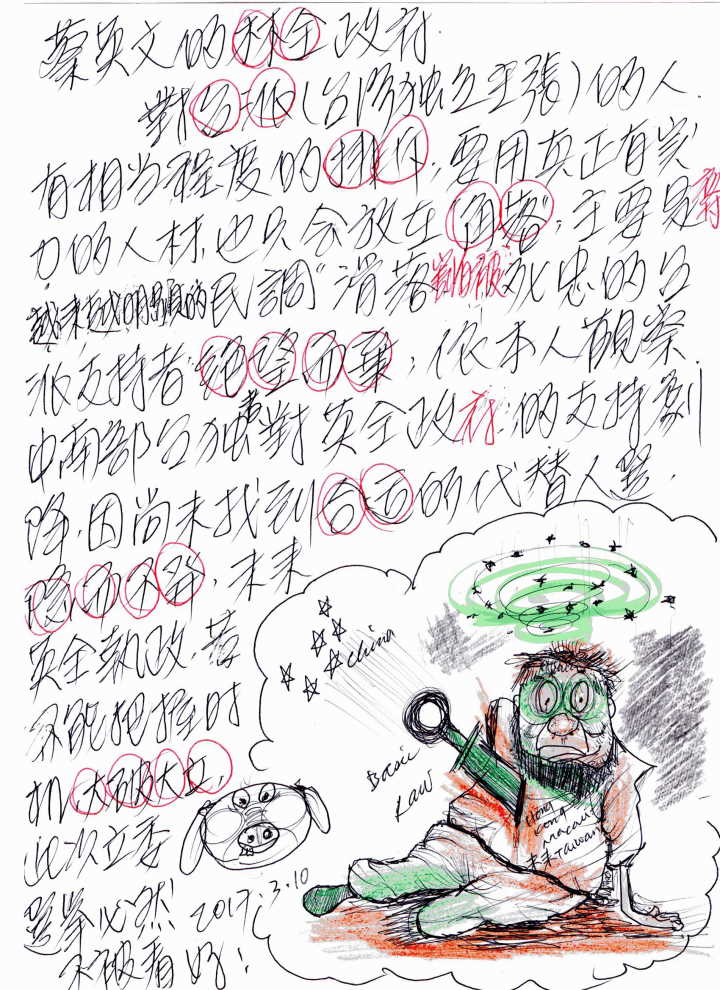 蔡英文的林全政府.
對台派(台湾独立主張)的人.
有相当程度的排斥,要用真正有实
力的人材,也只会放在"角落",主要是對
越来越明顯的民調"滑落"對旧被死忠的台
派支持者"絕望而棄",依本人觀察.
中南部台独者對英全政府的支持劇
降,因尚未找到合适的代替人選.
隱而不發,未来
英全執政,若
不能把握时
机,大破大立,
此次立委
選举必然
不被看好!
2017.3.10
china
Basic
Law
Hong
Kong
macau
未来Taiwan